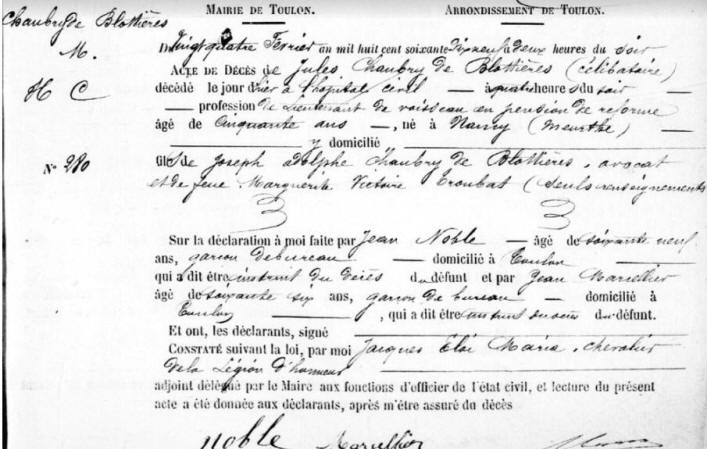 MAIRIE DE TOULON. ARRONDISSEMENT DE TOULON.
Chaubry de Blottières
M.
H C
N° 280
Du Vingt quatre Fevrier an mil huit cent soixante dix neuf à deux heures du soir
ACTE DE DÉCÈS de Jules Chaubry de Blottières (célibataire)
décédé le jour d'hier à l'hôpital civil — à quatre heures du soir
— profession de Lieutenant de vaisseau en pension de reforme
âgé de cinquante ans —, né à Nancy (Meurthe) —
y domicilié
fils de Joseph adolphe Chaubry de Blottières, avocat
et de feue Marguerite Victoire Troubat (seuls renseignements
Sur la déclaration à moi faite par Jean Noble — âgé de soixante neuf
ans, garçon de bureau — domicilié à Toulon
qui a dit être instruit du décès du défunt et par Jean Marcellier
âgé de soixante six ans, garçon de bureau — domicilié à
Toulon, qui a dit être du défunt.
Et ont, les déclarants, signé
CONSTATÉ suivant la loi, par moi Jacques Eloi Maria, chevalier
de la Légion d'honneur
adjoint délégué par le Maire aux fonctions d'officier de l'état civil, et lecture du présent
acte a été donnée aux déclarants, après m'être assuré du décès
Noble Marcellier